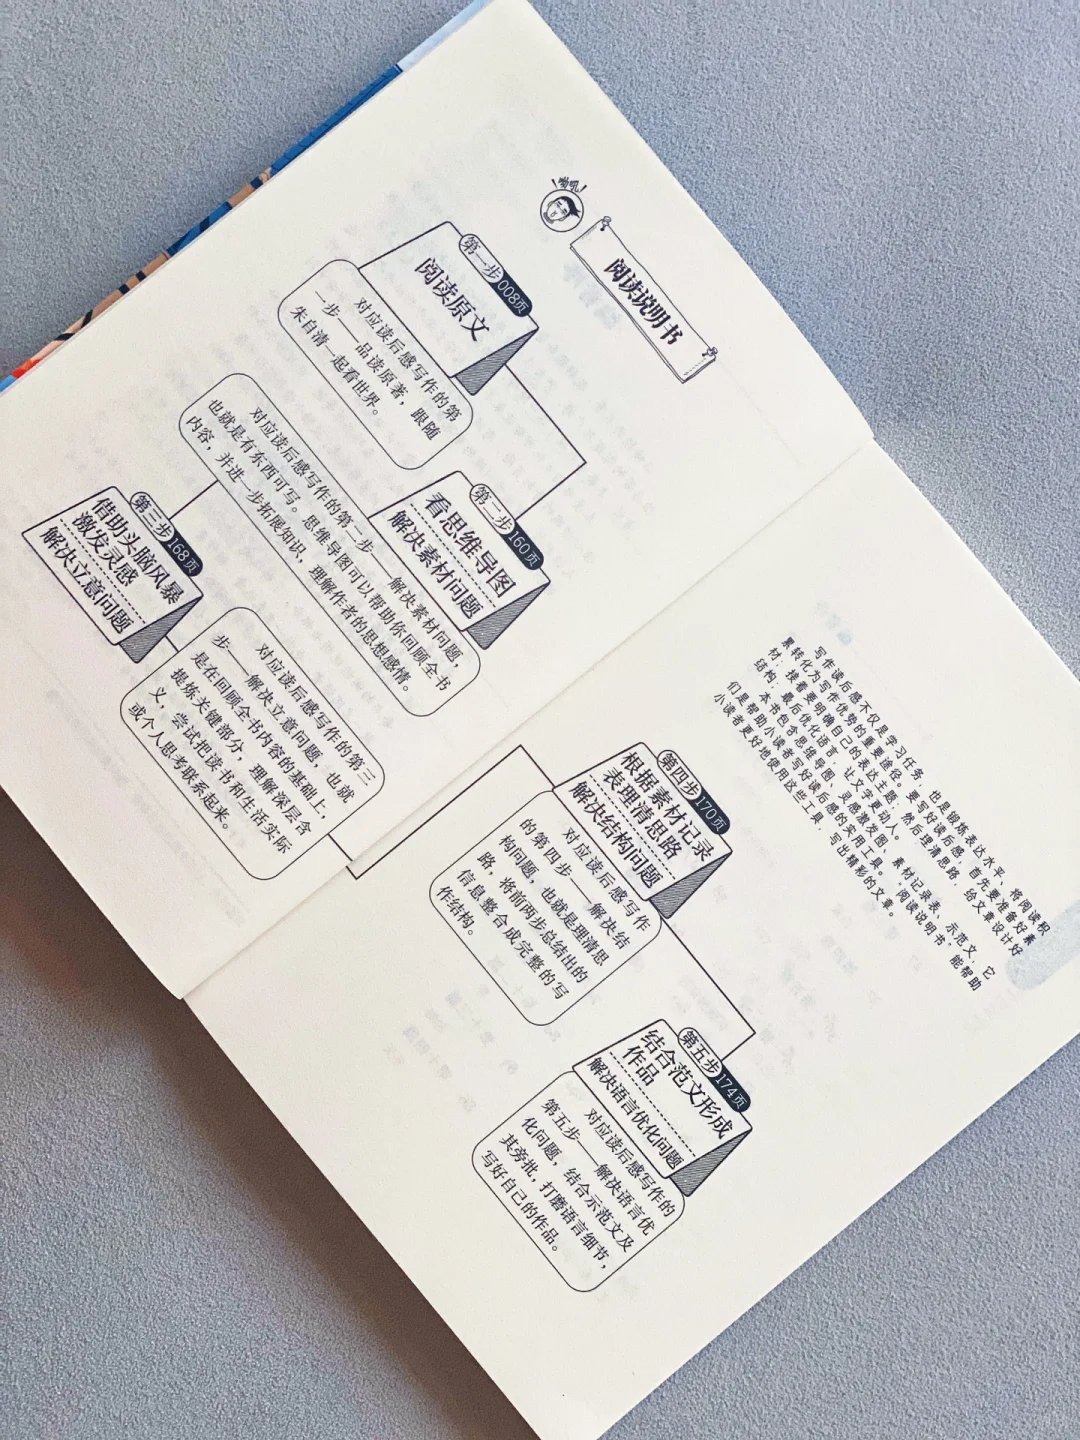 嗨吼！
阅读说明书
写作读后感不仅是学习任务，也是锻炼表达水平、将阅读积
累转化为写作优势的重要途径。要写好读后感，首先要准备好素
材；接着要明确自己的表达主题，然后理清思路，给文章设计好
结构；最后优化语言，让文字更动人。
本书包含思维导图、灵感激发图、素材记录表、示范文，它
们是帮助小读者写好读后感的实用工具。“阅读说明书”能帮助
小读者更好地使用这些工具，写出精彩的文章。
第一步 008页
阅读原文
对应读后感写作的第
一步——品读原著，跟随
朱自清一起看世界。
第二步 160页
看思维导图
解决素材问题
对应读后感写作的第二步——解决素材问题，
也就是有东西可写。思维导图可以帮助你回顾全书
内容，并进一步拓展知识，理解作者的思想感情。
第三步 168页
借助头脑风暴
激发灵感
解决立意问题
对应读后感写作的第三
步——解决立意问题，也就
是在回顾全书内容的基础上，
提炼关键部分，理解深层含
义，尝试把读书和生活实际
或个人思考联系起来。
第四步 170页
根据素材记录
表理清思路
解决结构问题
对应读后感写作
的第四步——解决结
构问题，也就是理清思
路，将前两步总结出的
信息整合成完整的写
作结构。
第五步 174页
结合范文形成
作品
解决语言优化问题
对应读后感写作的
第五步——解决语言优
化问题，结合示范文及
其旁批，打磨语言细节，
写好自己的作品。